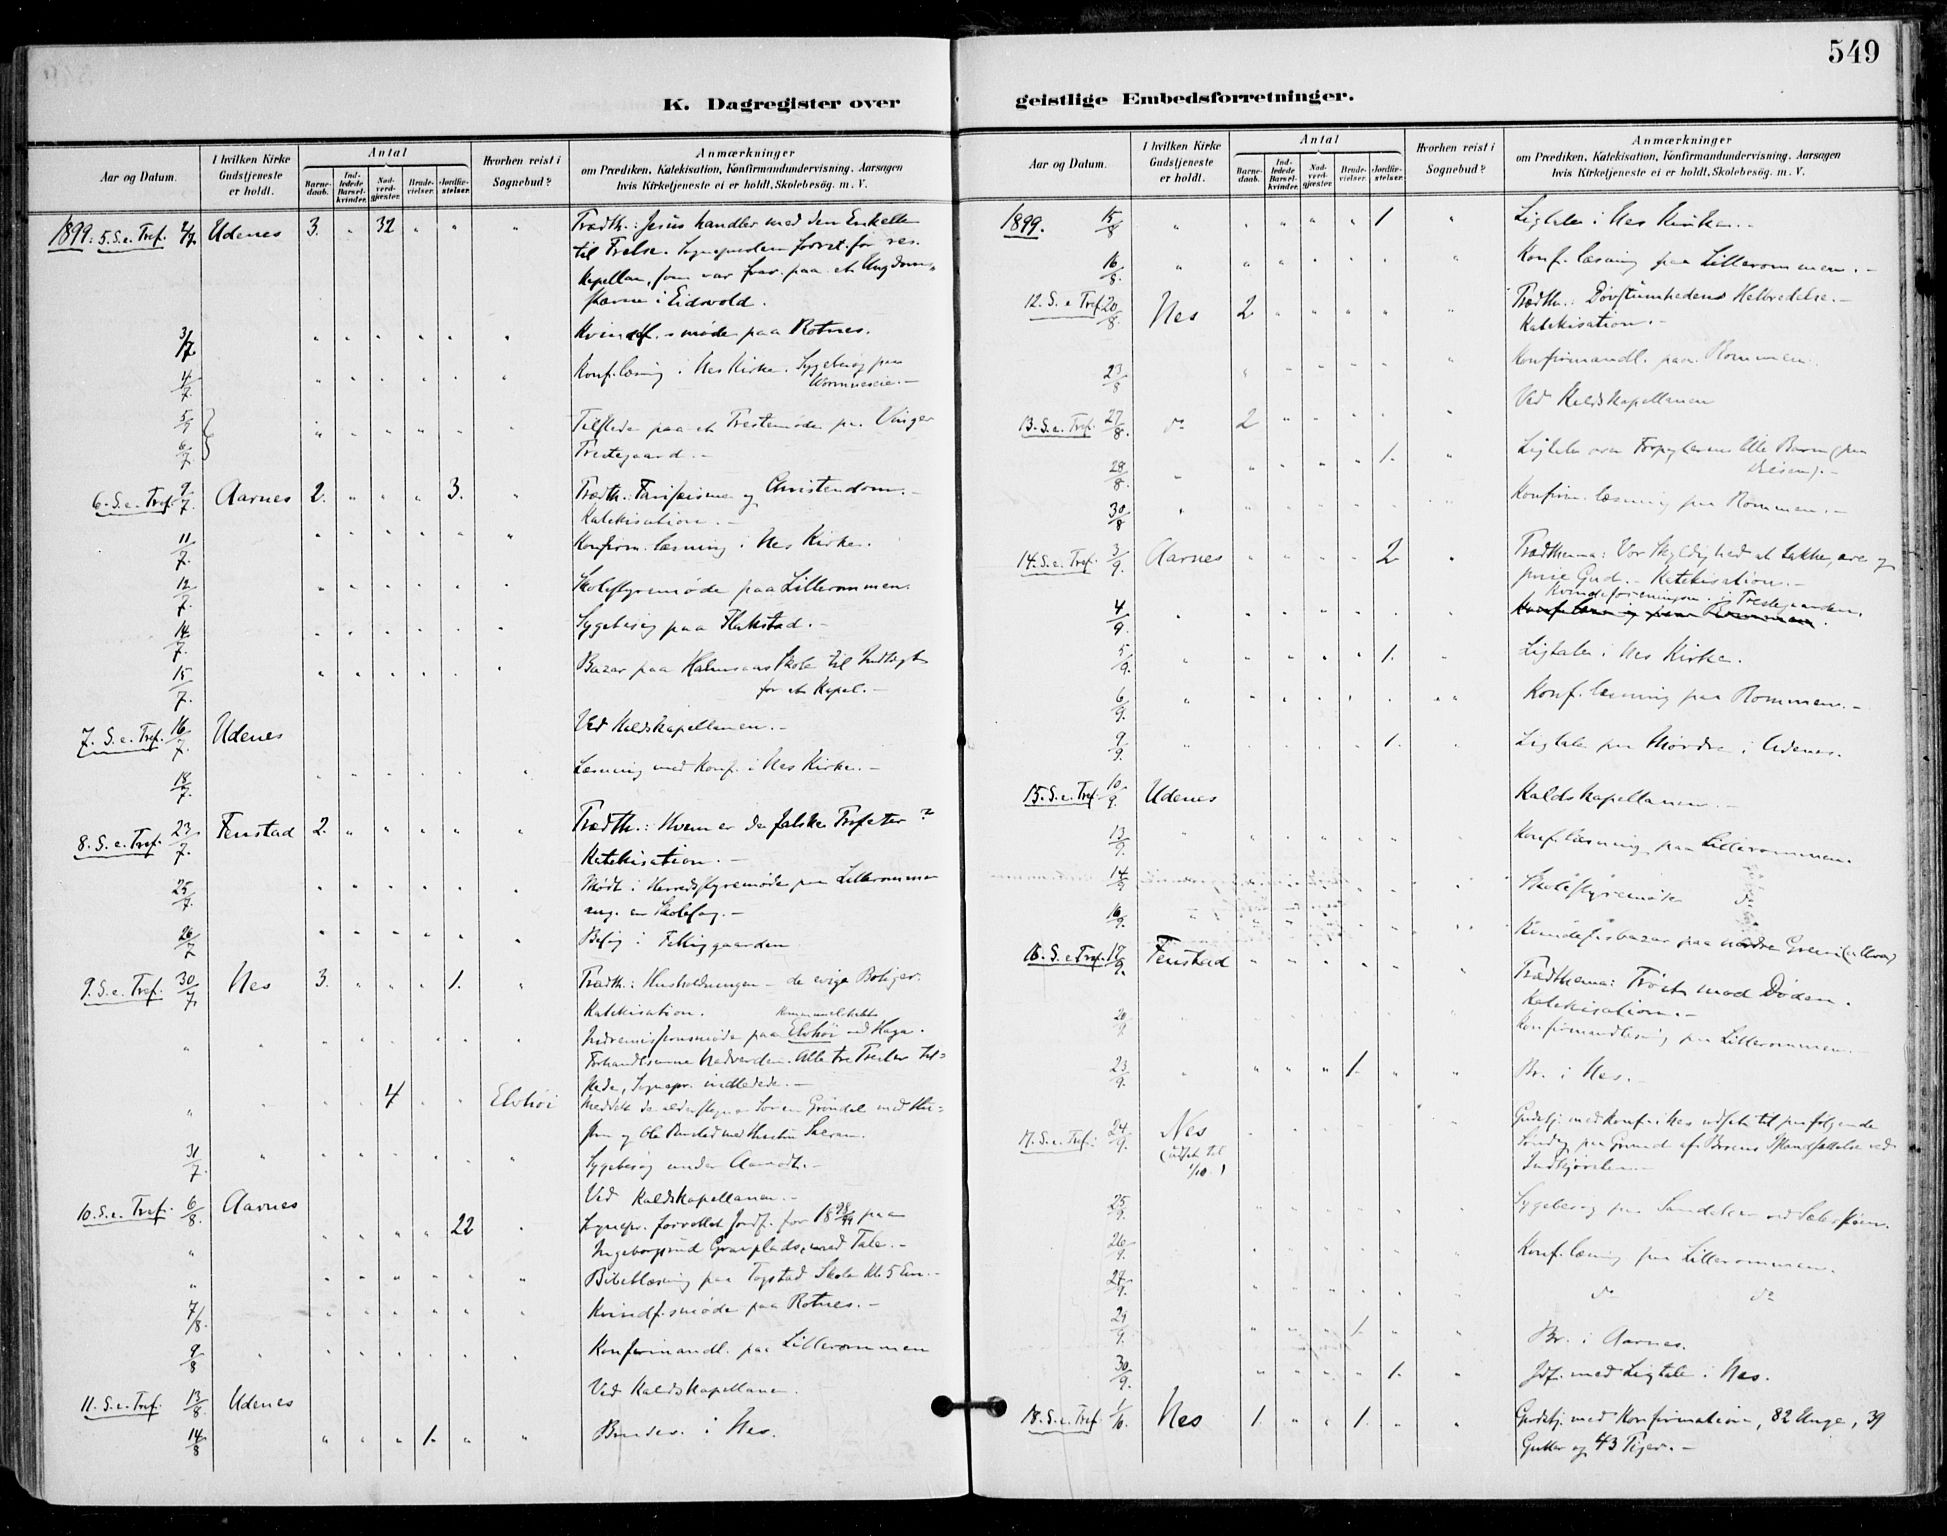 549
K. Dagregister over
geistlige Embedsforretninger.
Aar og Datum.
I hvilken Kirke Gudstjeneste er holdt.
Antal
Barnedaab.
Indledede Barselkvinder.
Nadverdgjæster
Brudevielser.
Jordfæstelser.
Hvorhen reist i Sognebud?
Anmærkninger
om Prædiken, Katekisation, Konfirmandundervisning, Aarsagen
hvis Kirketjeneste ei er holdt, Skolebesøg. m. V.
1899: 5. S. e. Tref. 2/7. Udenes 3. " 32 " " " Prædth.: Jesus handler med den Enkelte
til Frelse. Sognepresten forret. for res.
kapellan, som var frav. paa et Ungdoms-
stævne i Eidsvold.
3/7. " " " " " " Kvindf.smøde paa Rotnes.
4/7 " " " " " " Konf.læsning i Nes Kirke. Sygebesøg paa
5/7 6/7 " " " " " Tilstede paa et Prestemøde paa Vinger
Prestegaard. -
6. S. e. Tref. 9/7. Aarnes 2. " " " 3. " Prædth.: Farisæisme og Christendom. -
Katekisation. -
11/7. " " " " " " Konfirm.læsning i Nes Kirke.
12/7. " " " " " " Skolestyremøde paa Lillerommen.
14/7. " " " " " " Sygebesøg paa Flakstad. -
15/7. " " " " " " Bazar paa Skole til Indtægt
for et Kapel. -
7. S. e. Tref. 16/7. Udenes Ved Kaldskapellanen. -
18/7. " " " " " " Læsning med Konf. i Nes Kirke. -
8. S. e. Tref. 23/7. Fenstad 2. " " " " " Prædth.: Hvem er de falske Profeter?
Katekisation. -
25/7. " " " " " " Mødt i Herredsstyremøde paa Lillerommen
ang. en Skolesag. -
26/7 " " " " " " Besøg i Fattiggaarden
9. S. e. Tref. 30/7. Nes 3. " " " 1. " Prædth.: Husholdningen - de evige Boliger.
Katekisation.
Indremissionsmøde paa Elvhøi ved Haga.
Forhandlsemne Nadverden. Alle tre Prester til-
stede, Sognepr. indledede. -
" " " 4 " " Elvhøi Meddelt de
og Ole med Hustru Sacram.
31/7. " " Sygebesøg under Aarnodt. -
10. S. e. Tref. 6/8. Aarnes Ved Kaldskapellanen. -
" " " " " 22 Sognepr. forrettet Jordf. for 1898/99 paa
Ingeborgsrud Gravplads, med Tale. -
" " " " " " " Bibellæsning paa Togstad Skole Kl. 5 Em. -
7/8. " " " " " " Kvindf.smøde paa Rotnes. -
9/8 " " " " " " " Konfirmandl. paa Lillerommen
11. S. e. Tref. 13/8. Udenes Ved Kaldskapellanen.
14/8 " " " 1. " " Brudev. i Nes.
Aar og Datum.
I hvilken Kirke Gudstjeneste er holdt.
Antal
Barnedaab.
Indledede Barselkvinder.
Nadverdgjæster
Brudevielser.
Jordfæstelser.
Hvorhen reist i Sognebud?
Anmærkninger
om Prædiken, Katekisation, Konfirmandundervisning, Aarsagen
hvis Kirketjeneste ei er holdt, Skolebesøg. m. V.
1899. 15/8 " " " " " 1. " Ligtale i Nes Kirke. -
16/8. " " " " " " " Konf.læsning paa Lillerommen. -
12. S. e. Tref. 20/8. Nes 2 " " " " " Prædth.: Døvstumhedens Helbredelse. -
Katekisation. -
23/8 " " " " " " Konfirmandl. paa Rommen.
13. S. e. Tref. 27/8. do 2 " " " " " Ved Kaldskapellanen
28/8. " " " " " 1. " Ligtale over Barn (paa
30/8 " " " " " " " Konfirm.læsning paa Rommen. -
14. S. e. Tref. 3/9. Aarnes " " " " 2 " Prædthema: Vor Skyldighed at takke, ære og
prise Gud. - Katekisation. -
4/9. " " " " " " " Kvindeforeningen i Prestegaarden.
5/9. " " " " " 1. " Ligtale i Nes Kirke.
6/9. " " " " " " " Konf.læsning paa Rommen. -
9/9. " " " " " 1. " Ligtale paa Hvordre i Udenes.
15. S. e. Tref. 10/9. Udenes Kaldskapellanen. -
13/9. " " " " " " " Konf.læsning paa Lillerommen.
14/9 " " Skolestyremøde do
16/9. " " Kvindef.sbazar paa nordre
16. S. e. Tref. 17/9. Fenstad " " " " " " Prædthema: Trøst mod Døden.
Katekisation. -
20/9. " " " " " " Konfirmandlæsning paa Lillerommen. -
23/9. " " " " 1. " " Br. i Nes. -
17. S. e. Tref. 24/9. Nes (udsat til 1/10.) Gudstj. med Konf. i Nes udsat til paafølgende
Søndag paa Grund af Broens Istandsættelse ved
Indkjørselen. -
25/9. Sygebesøg paa
26/9. Konf.læsning paa Lillerommen.
27/9. do do
29/9. " " " 1. " " Br. i Aarnes.
30/9. " " " " 1. " Jdf. med Ligtale i Nes.
18. S. e. Tref. 1/10. Nes 1. " " 1. " " Gudstj. med Konfirmation, 82 Unge, 39
Gutter og 43 Piger. -